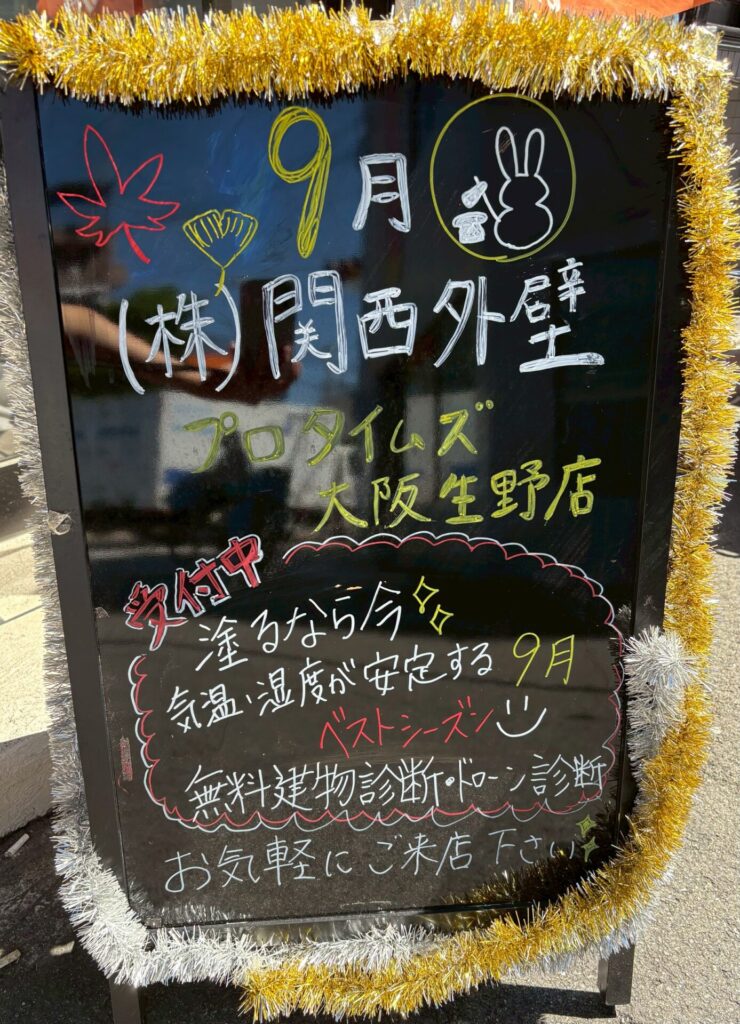 9月
(株)関西外壁
プロタイムズ
大阪生野店
受付中
塗るなら今
気温・湿度が安定する9月
ベストシーズン
無料建物診断・ドローン診断
お気軽にご来店下さい